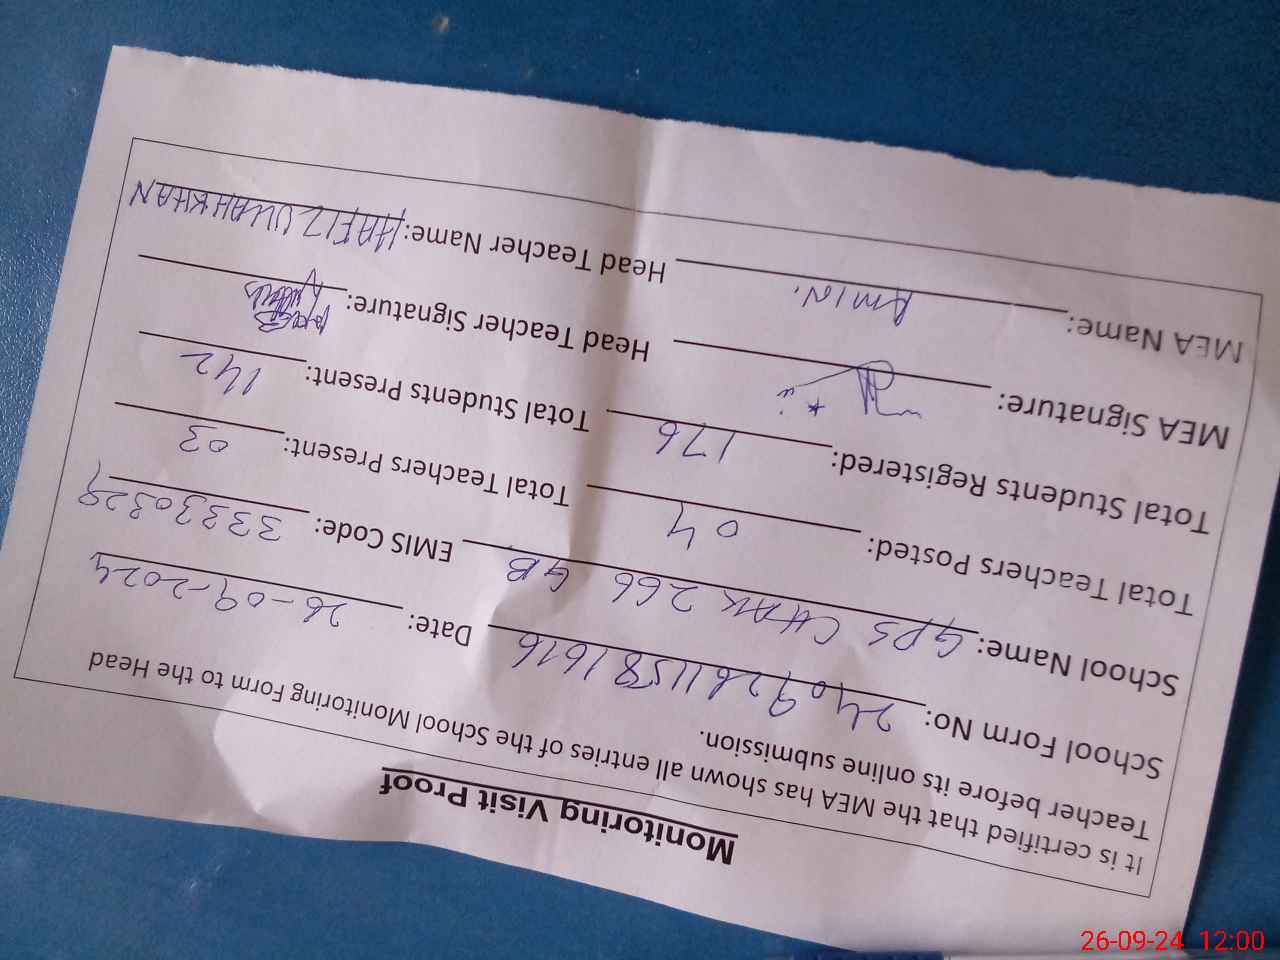 Monitoring Visit Proof
It is certified that the MEA has shown all entries of the School Monitoring Form to the Head
Teacher before its online submission.
School Form No: 24092611581616 Date: 26-09-2024
School Name: GPS CHAK 266 GB EMIS Code: 33330329
Total Teachers Posted: 04 Total Teachers Present: 03
Total Students Registered: 176 Total Students Present: 142
MEA Signature: Head Teacher Signature:
MEA Name: AMIN. Head Teacher Name: HAFIZ ULLAH KHAN
26-09-24 12:00